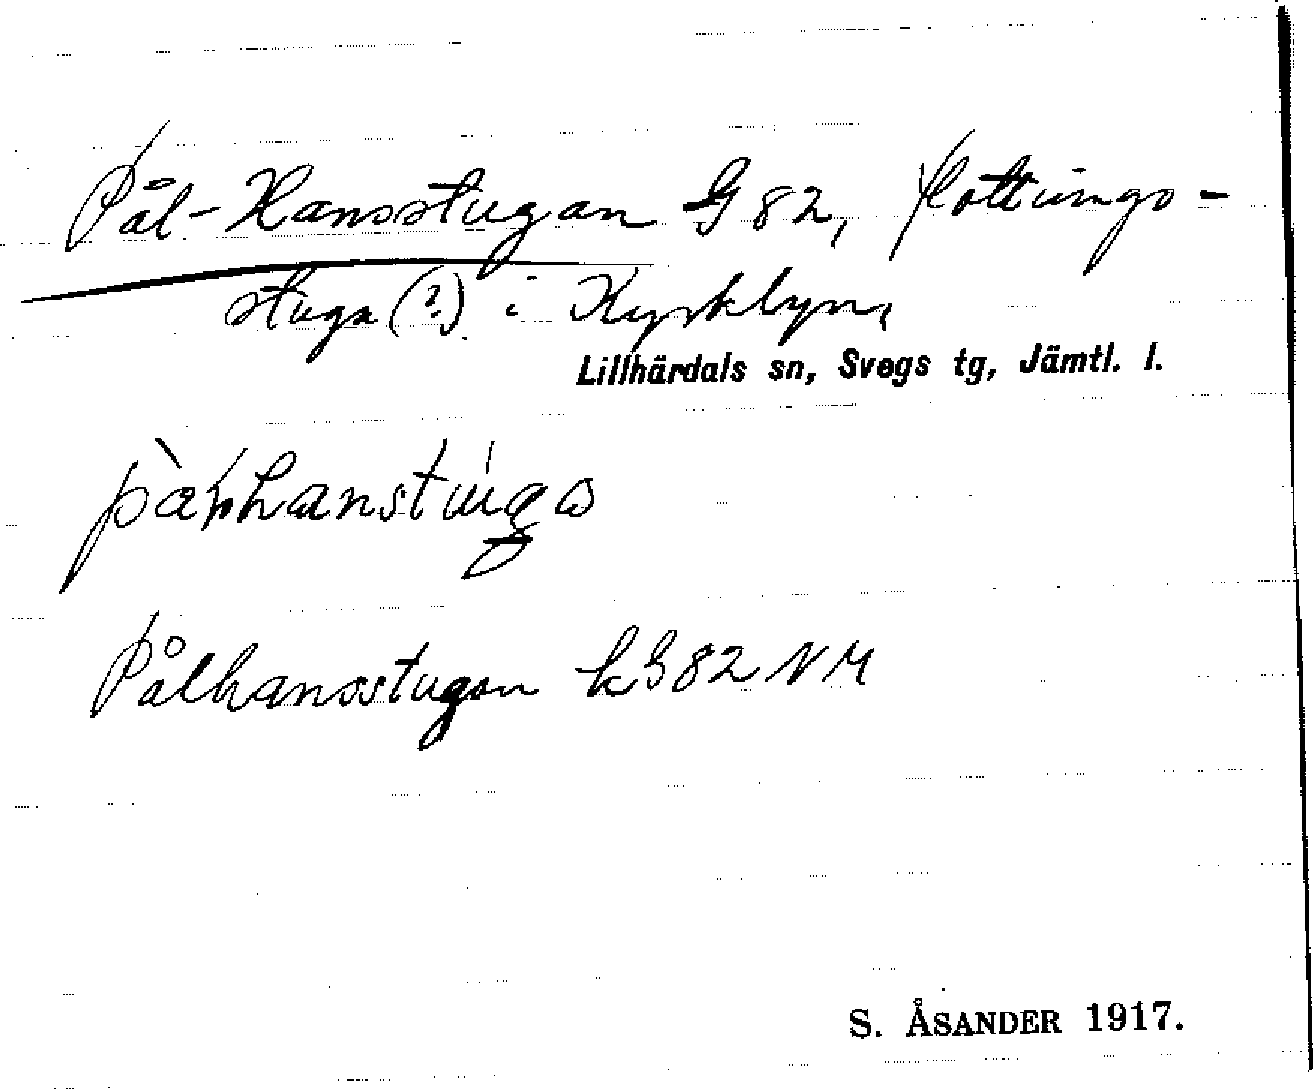 Pål-Hansstugan G 82, flottnings-
stuga (?) i Kyrkbyn,
Lillhärdals sn, Svegs tg, Jämtl. l.
Pålhansstugan kG82 NM
S. ÅSANDER 1917.